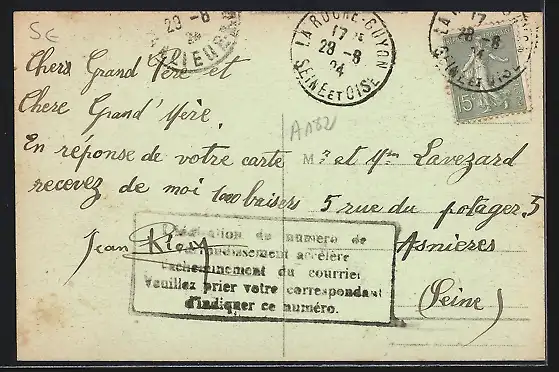 5C
29-8
LA ROCHE-GUYON
17 H
28-8
24
SEINE ET OISE
LA ROCHE-GUYON
17
28-8
24
SEINE ET OISE
15
Chers Grand Père et
Chere Grand' Mère.
En réponse de votre carte
recevez de moi 1000 baisers
Jean
A182
Mr et Mme Lavezard
5 rue du potager. 5
Asnieres
(Seine)
L'indication du numéro de
l'arrondissement accélère
l'acheminement du courrier
Veuillez prier votre correspondant
d'indiquer ce numéro.